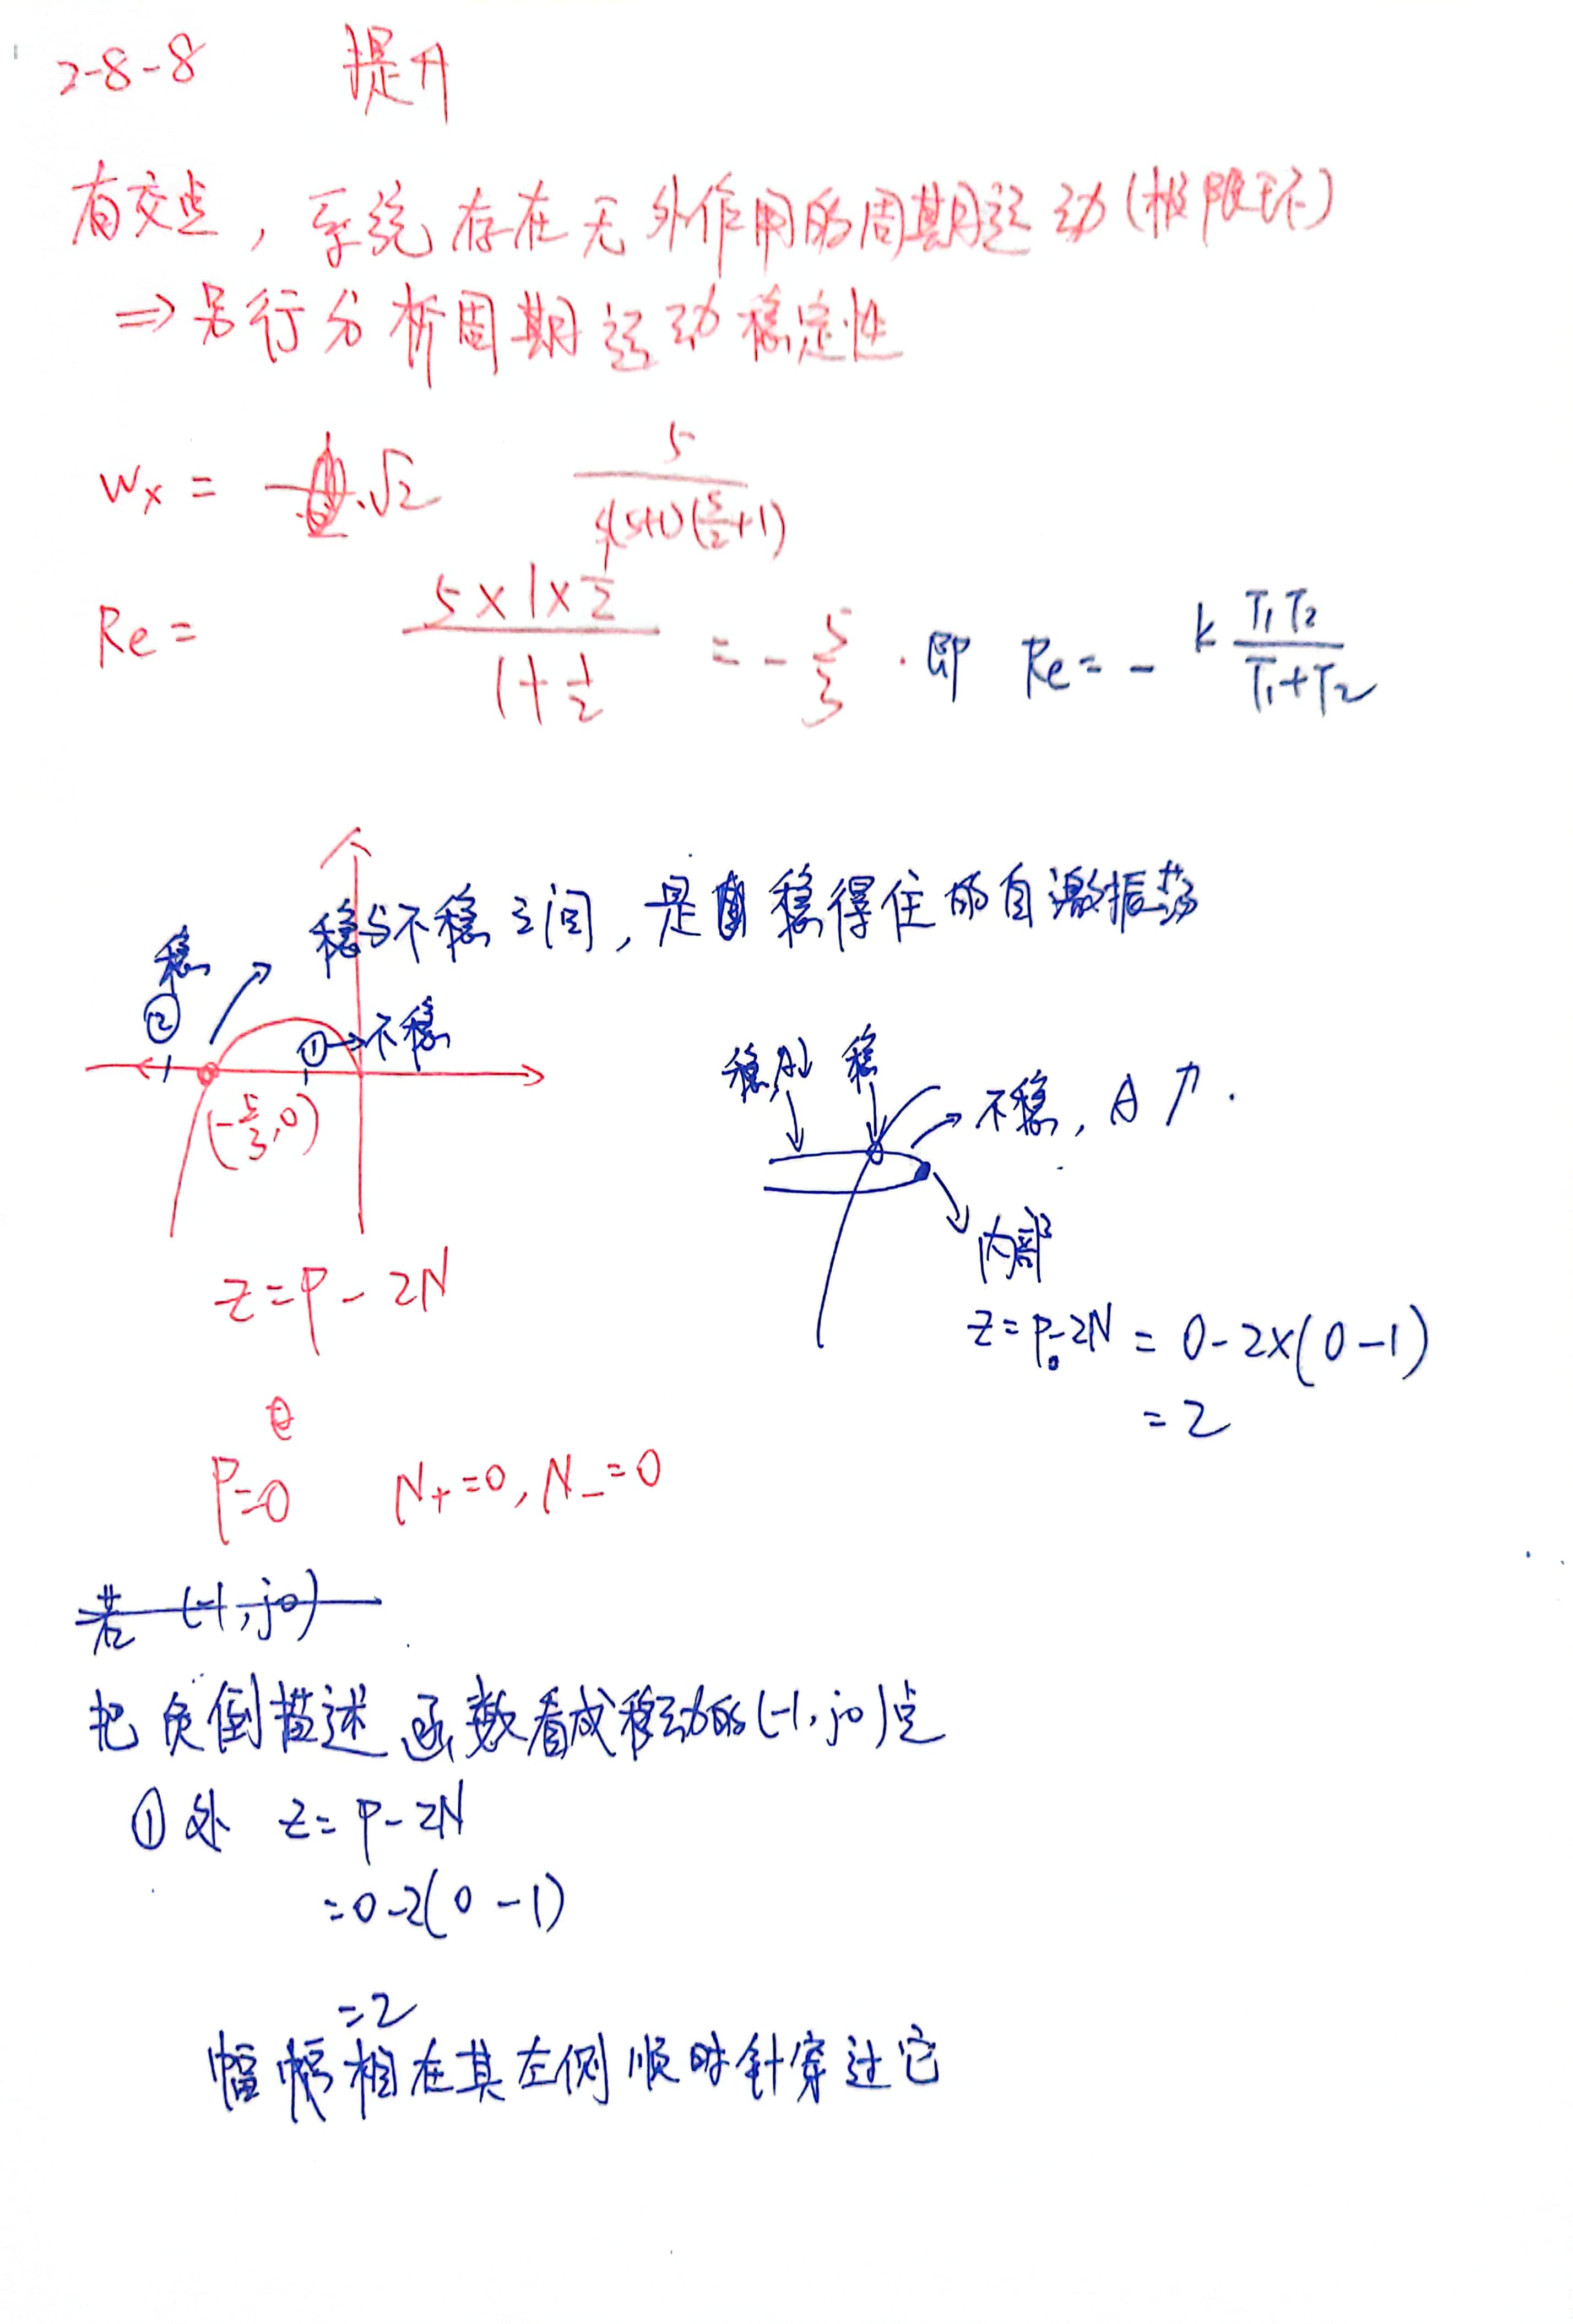 2-8-8 提升
有交点，系统存在无外作用的周期运动(极限环)
⇒另行分析周期运动稳定性
Wx = √2 5/(s(s+1)(s/2+1))
Re = (5×1×1/2)/(1+1/2) = -5/3 . 即 Re = -k T₁T₂/(T₁+T₂)
稳与不稳之间，是稳得住的自激振荡
稳
②
①→不稳
(-5/3,0)
稳A↓ 稳
不稳，A↗.
内部
Z=P-2N
Z=P-2N = 0-2×(0-1)
=2
P=0 N₊=0, N₋=0
若 (-1, j0)
把负倒描述函数看成移动的(-1, j0)点
①处 Z=P-2N
=0-2(0-1)
=2
幅 幅相在其左侧顺时针穿过它